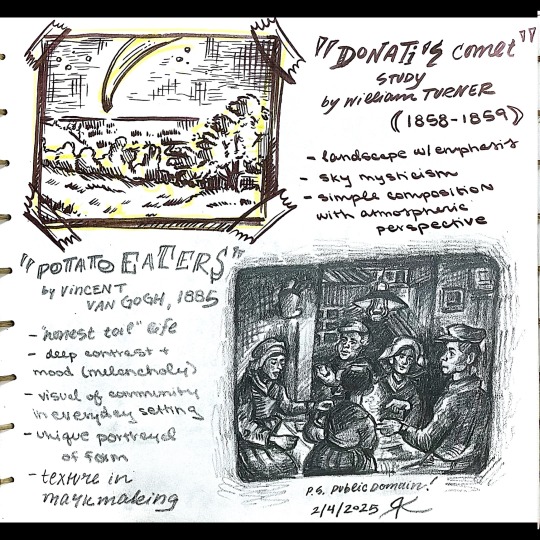 "DONATI's comet"
STUDY
by William TURNER
(1858-1859)
- landscape w/emphasis
- sky mysticism
- simple composition
with atmospheric
perspective
"POTATO EATERS"
by VINCENT
VAN GOGH, 1885
- "honest toil" life
- deep contrast +
mood (melancholy)
- visual of community
in everyday setting
- unique portrayal
of form
- texture in
markmaking
P.S. PUBLIC DOMAIN!
2/4/2025